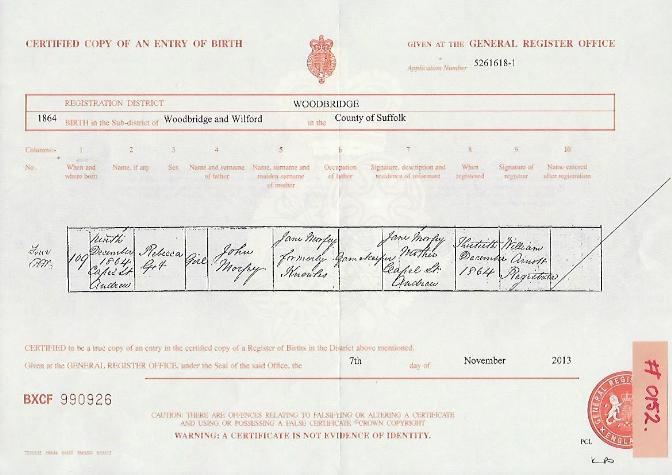 CERTIFIED COPY OF AN ENTRY OF BIRTH
GIVEN AT THE GENERAL REGISTER OFFICE
Application Number 5261618-1
REGISTRATION DISTRICT WOODBRIDGE
1864 BIRTH in the Sub-district of Woodbridge and Wilford in the County of Suffolk
Columns:- 1 2 3 4 5 6 7 8 9 10
No. When and where born Name, if any Sex Name and surname of father Name, surname and maiden surname of mother Occupation of father Signature, description and residence of informant When registered Signature of registrar Name entered after registration
109 Ninth December 1864 Capel St Andrew Rebecca Girl John Morphy Jane Morphy formerly Knowles Jane Morphy Mother Capel St Andrew Thirtieth December 1864 William Arnott Registrar
CERTIFIED to be a true copy of an entry in the certified copy of a Register of Births in the District above mentioned.
Given at the GENERAL REGISTER OFFICE, under the Seal of the said Office, the 7th day of November 2013
BXCF 990926
CAUTION: THERE ARE OFFENCES RELATING TO FALSIFYING OR ALTERING A CERTIFICATE
AND USING OR POSSESSING A FALSE CERTIFICATE ©CROWN COPYRIGHT
WARNING: A CERTIFICATE IS NOT EVIDENCE OF IDENTITY.
# 0152.
GENERAL REGIS
PCL